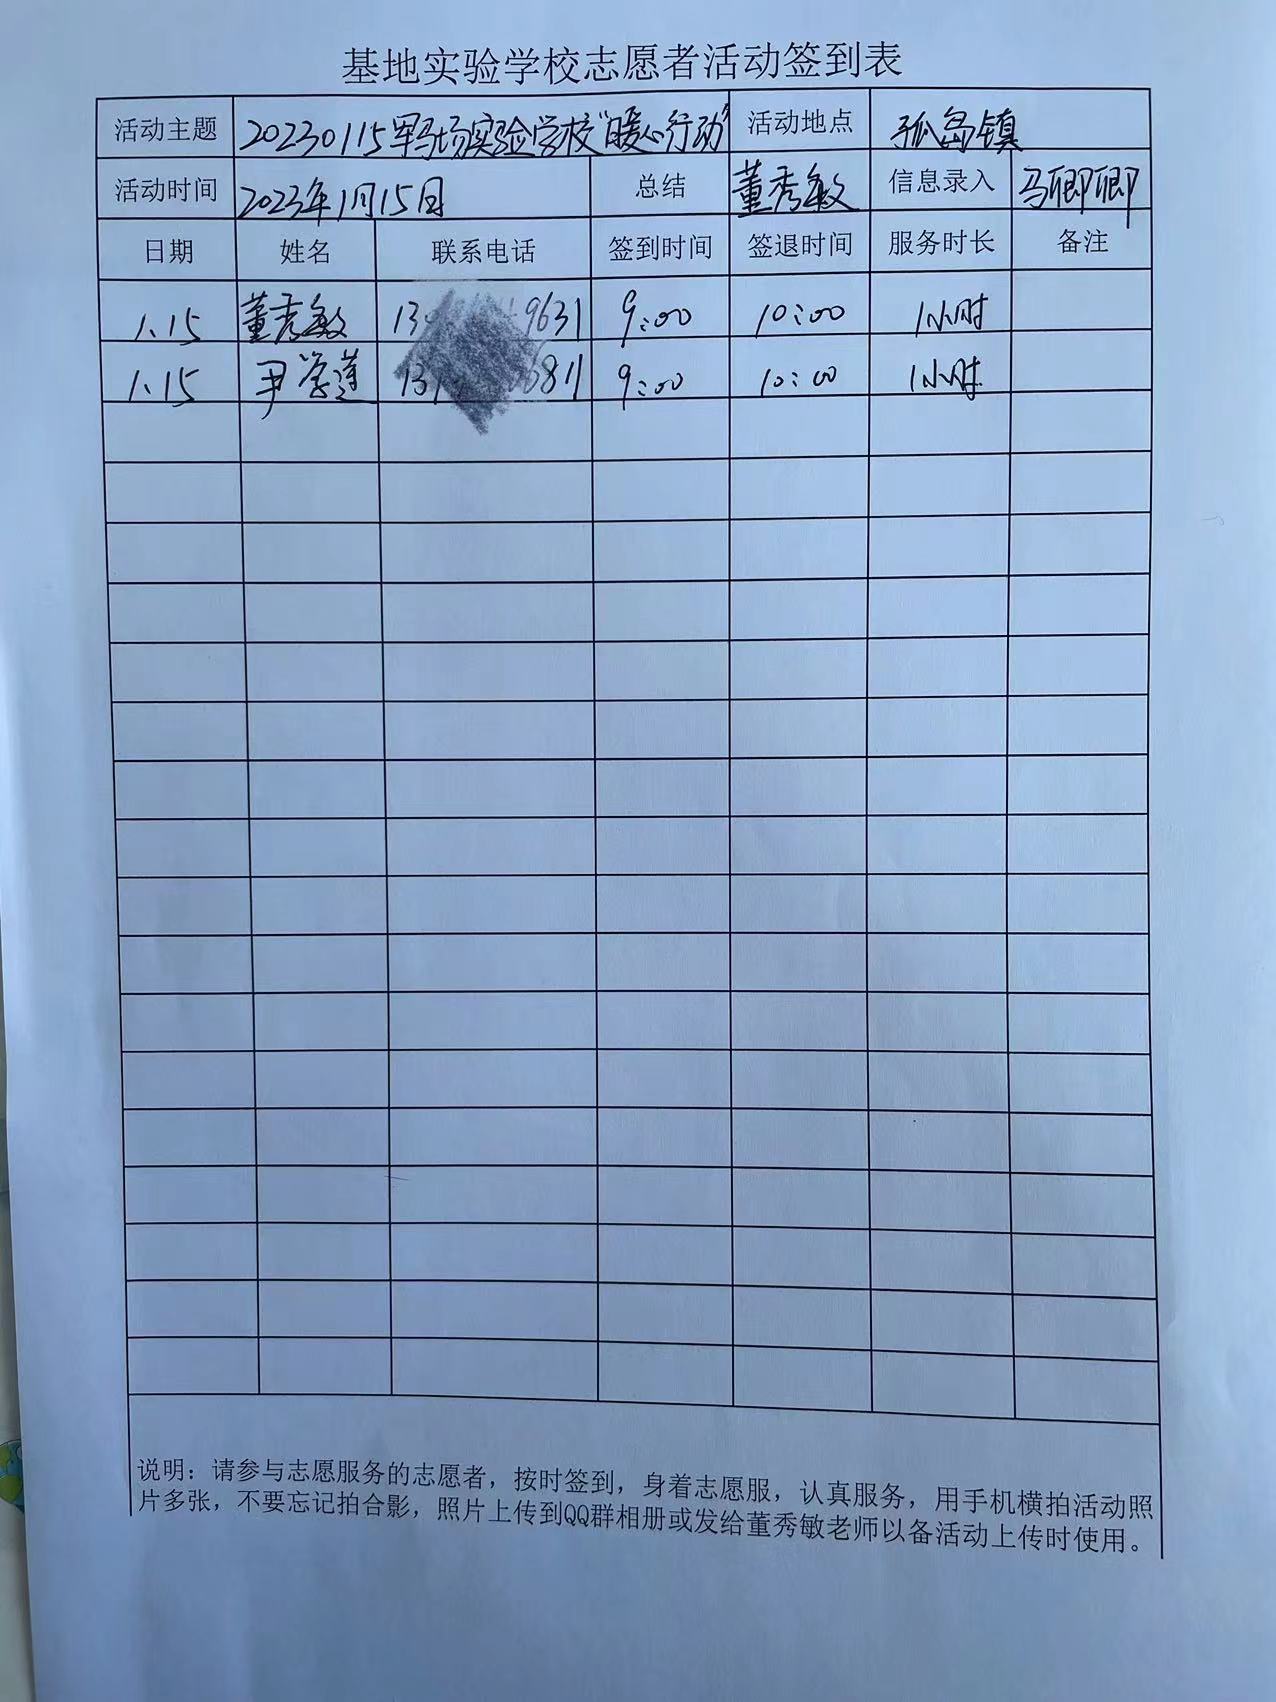 基地实验学校志愿者活动签到表
活动主题 20230115军马场实验学校"暖心行动" 活动地点 孤岛镇
活动时间 2023年1月15日 总结 董秀敏 信息录入 马卿卿
日期 姓名 联系电话 签到时间 签退时间 服务时长 备注
1.15 董秀敏 9631 9:00 10:00 1小时
1.15 尹学莲 6811 9:00 10:00 1小时
说明：请参与志愿服务的志愿者，按时签到，身着志愿服，认真服务，用手机横拍活动照
片多张，不要忘记拍合影，照片上传到QQ群相册或发给董秀敏老师以备活动上传时使用。